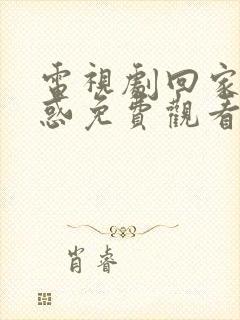 電視劇回家
惑免費觀看
肖睿